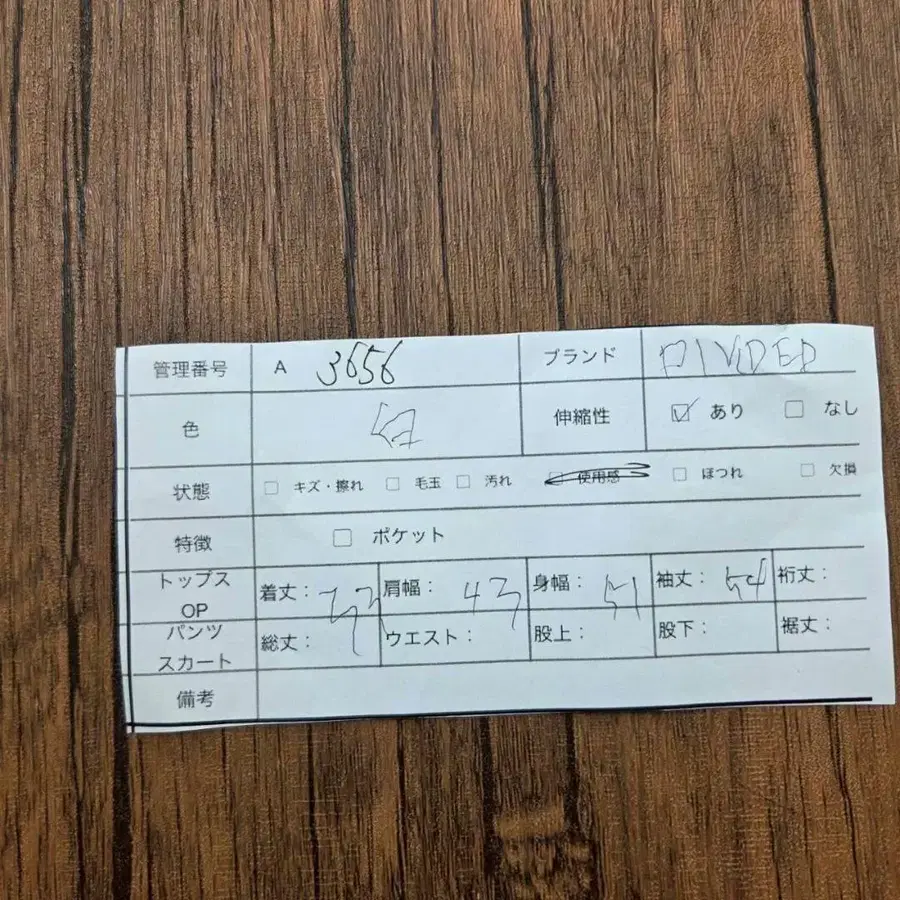 管理番号 A 3656 ブランド DIVIDED
色 白 伸縮性 ☑ あり ☐ なし
状態 ☐ キズ・擦れ ☐ 毛玉 ☐ 汚れ ☐ 使用感 ☐ ほつれ ☐ 欠損
特徴 ☐ ポケット
トップス OP 着丈: 肩幅: 43 身幅: 51 袖丈: 54 裄丈:
パンツ スカート 総丈: ウエスト: 股上: 股下: 裾丈:
備考